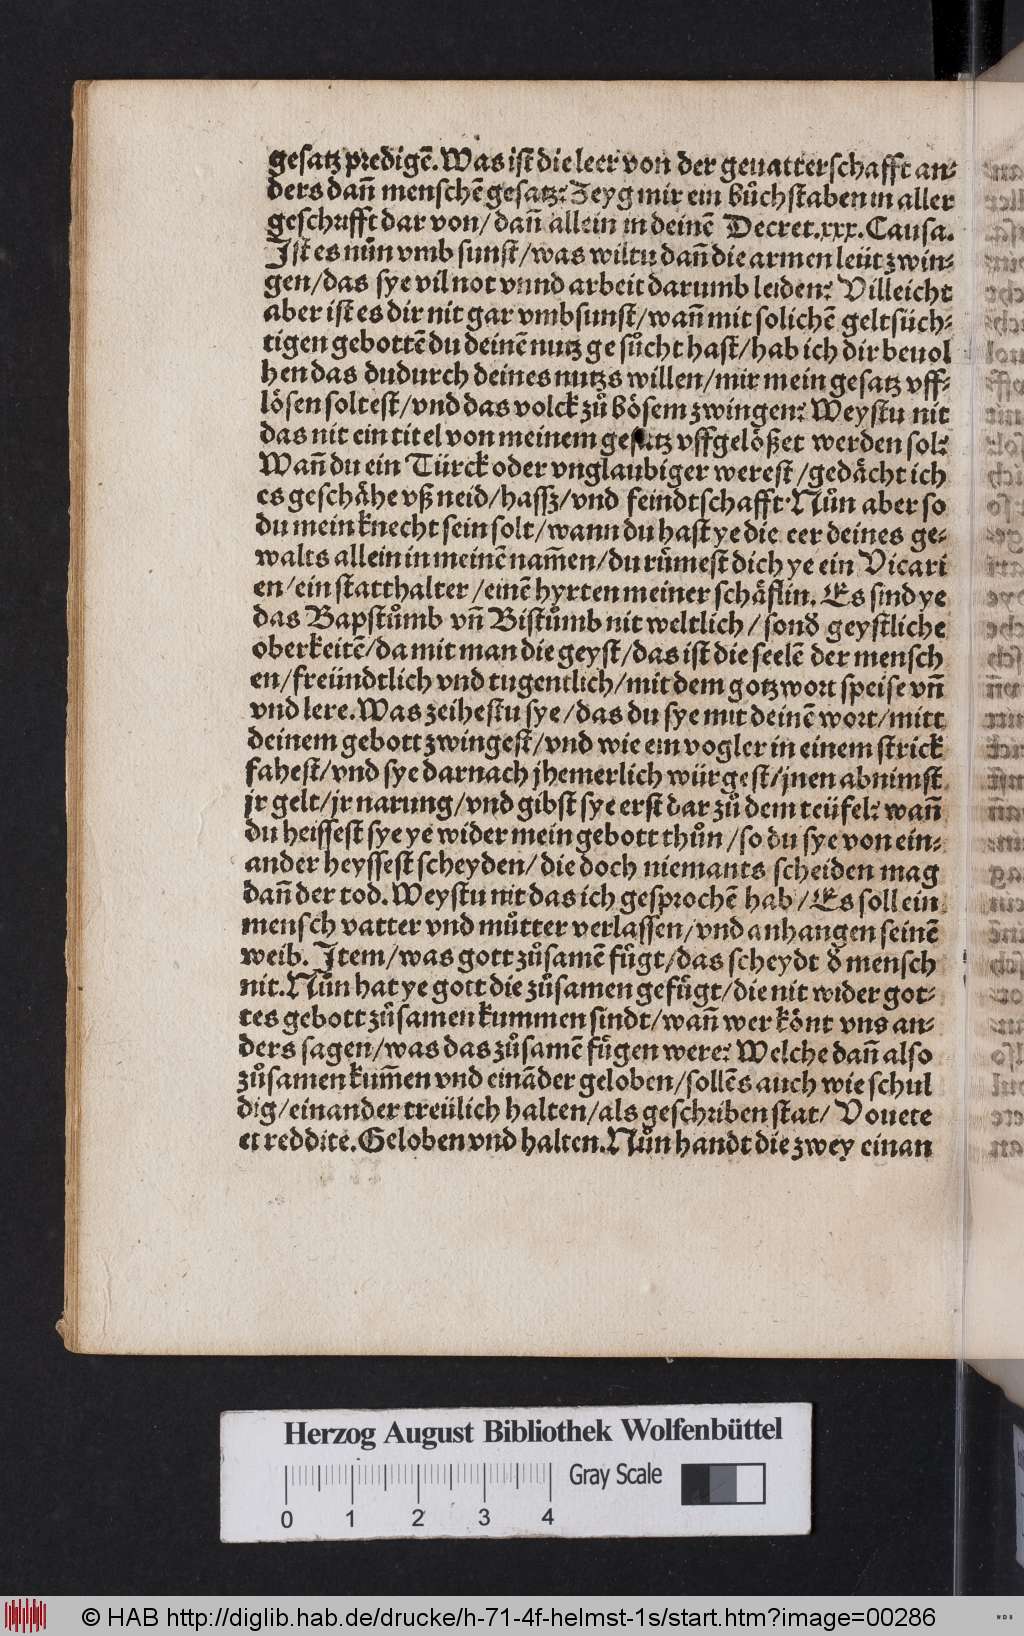 gesatz predigē. Was ist die leer von der geuatterschafft an⸗
ders dañ menschē gesatz: Zeyg mir ein bůchstaben in aller
geschrifft dar von/ dañ allein in deinē Decret.xxx.Causa.
Ist es nůn vmb sunst/was wiltu dañ die armen leüt zwin⸗
gen/das sye vil not vnnd arbeit darumb leiden: Villeicht
aber ist es dir nit gar vmbsunst/wañ mit solichē geltsüch⸗
tigen gebottē du deinē nutz gesůcht hast/hab ich dir beuol
hen das du durch deines nutzs willen/mir mein gesatz vff⸗
lösen soltest/vnd das volck zů bösem zwingen: Weystu nit
das nit ein titel von meinem gesatz vffgelößet werden sol:
Wañ du ein Türck oder vnglaubiger werest/gedächt ich
es geschähe vß neid/hassz/vnd feindtschafft. Nůn aber so
du mein knecht sein solt/wann du hast ye die eer deines ge⸗
walts allein in meinē nam̄en/du růmest dich ye ein Vicari
en/ein statthalter/einē hyrten meiner schäflin. Es sind ye
das Bapstůmb vñ Bistůmb nit weltlich/sonđ geystliche
oberkeitē/da mit man die geyst/das ist die seelē der mensch
en/freündtlich vnd tugentlich/mit dem gotzwort speise vñ
vnd lere. Was zeihestu sye/das du sye mit deinē wort/mitt
deinem gebott zwingest/vnd wie ein vogler in einem strick
fahest/vnd sye darnach jhemerlich würgest/jnen abnimst
jr gelt/jr narung/vnd gibst sye erst dar zů dem teüfel: wañ
du heissest sye ye wider mein gebott thůn/so du sye von ein⸗
ander heyssest scheyden/die doch niemants scheiden mag
dañ der tod. Weystu nit das ich gesprochē hab/Es soll ein
mensch vatter vnd můtter verlassen/vnd anhangen seinē
weib. Item/was gott zůsamē fůgt/das scheydt đ mensch
nit. Nůn hat ye gott die zůsamen gefůgt/die nit wider got⸗
tes gebott zůsamen kummen sindt/wañ wer könt vns an⸗
ders sagen/was das zůsamē fůgen were: Welche dañ also
zůsamen kum̄en vnd eināder geloben/sollēs auch wie schul
dig/einander treülich halten/als geschriben stat/ Vouete
et reddite. Geloben vnd halten. Nůn handt die zwey einan
Herzog August Bibliothek Wolfenbüttel
Gray Scale
0 1 2 3 4
© HAB http://diglib.hab.de/drucke/h-71-4f-helmst-1s/start.htm?image=00286